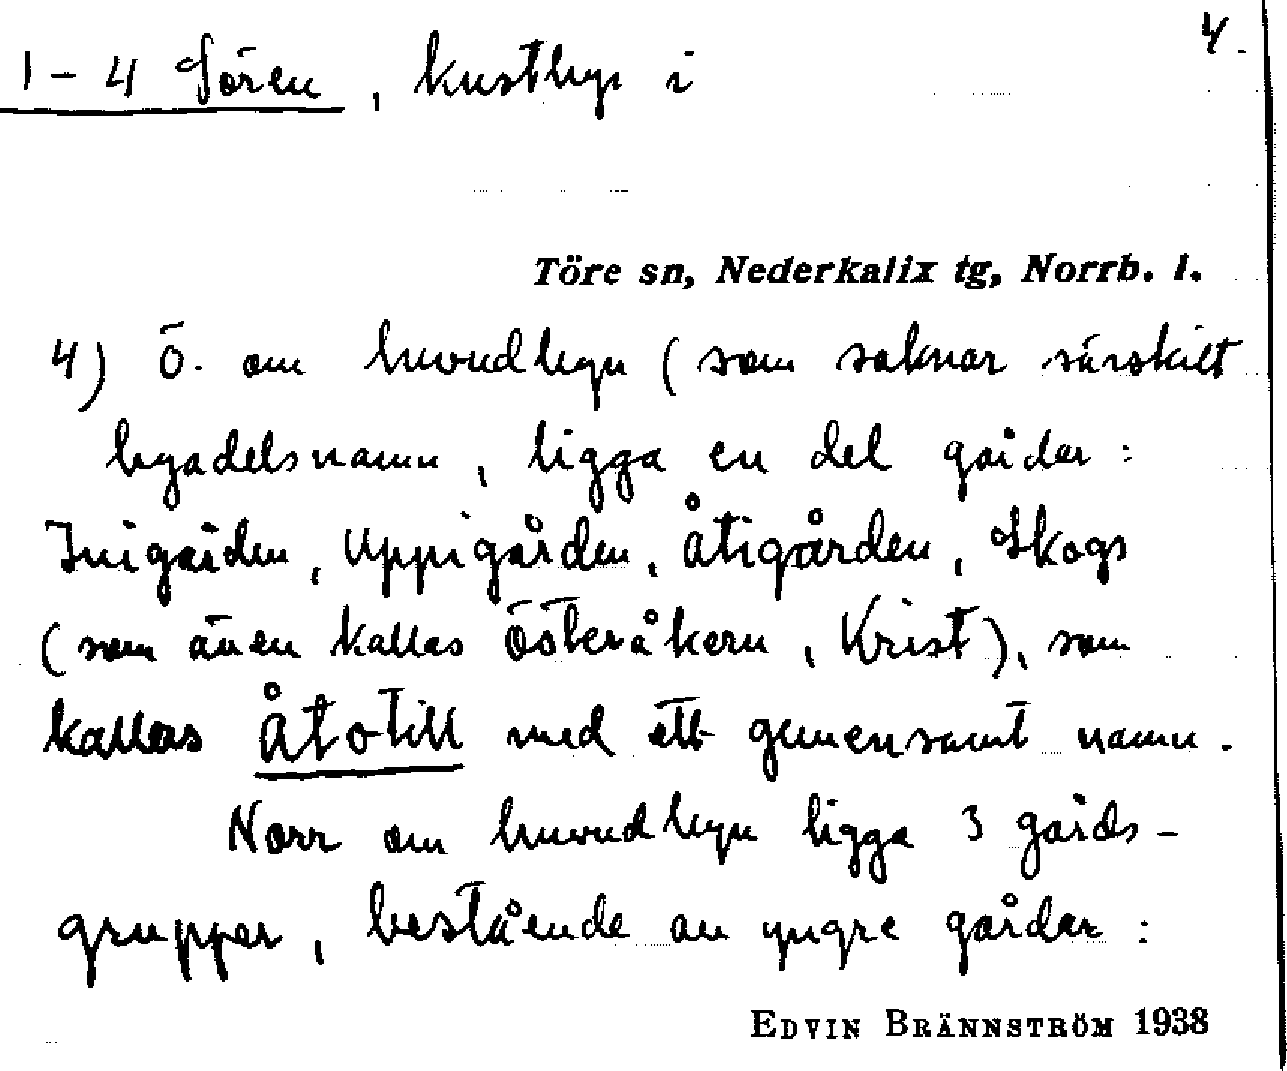 4.
1-4 Sören, kustby i
Töre sn, Nederkalix tg, Norrb. l.
4) Ö. om huvudbyn (som saknar särskilt
byadelsnamn, ligga en del gårdar:
Inigården, Uppigården, Åtigården, Skogs
(som även kallas Österåkern, Krist), som
kallas Åtotill med ett gemensamt namn.
Norr om huvudbyn ligga 3 gårds-
grupper, bestående av yngre gårdar:
EDVIN BRÄNNSTRÖM 1938